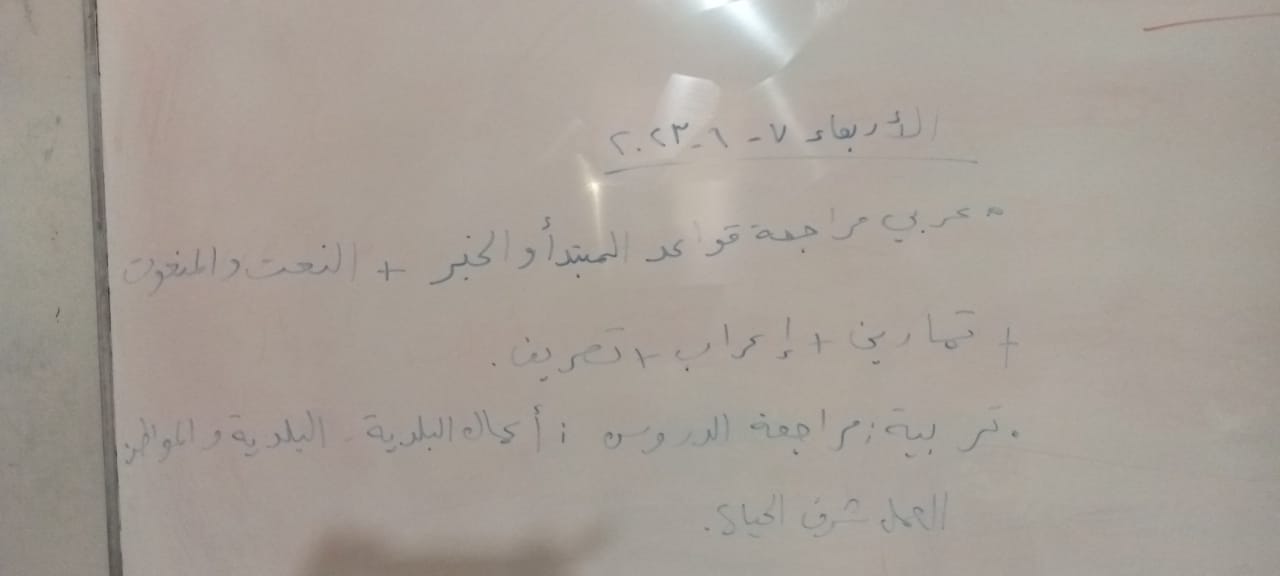 الأربعاء ٧-٦-٢٠٢٣
• عربي مراجعة قواعد المبتدأ والخبر + النعت والمنعوت
+ تمارين + إعراب + تصريف.
• تربية: مراجعة الدروس: أعمال البلدية - البلدية والمواطن
العمل شرف الحياة.